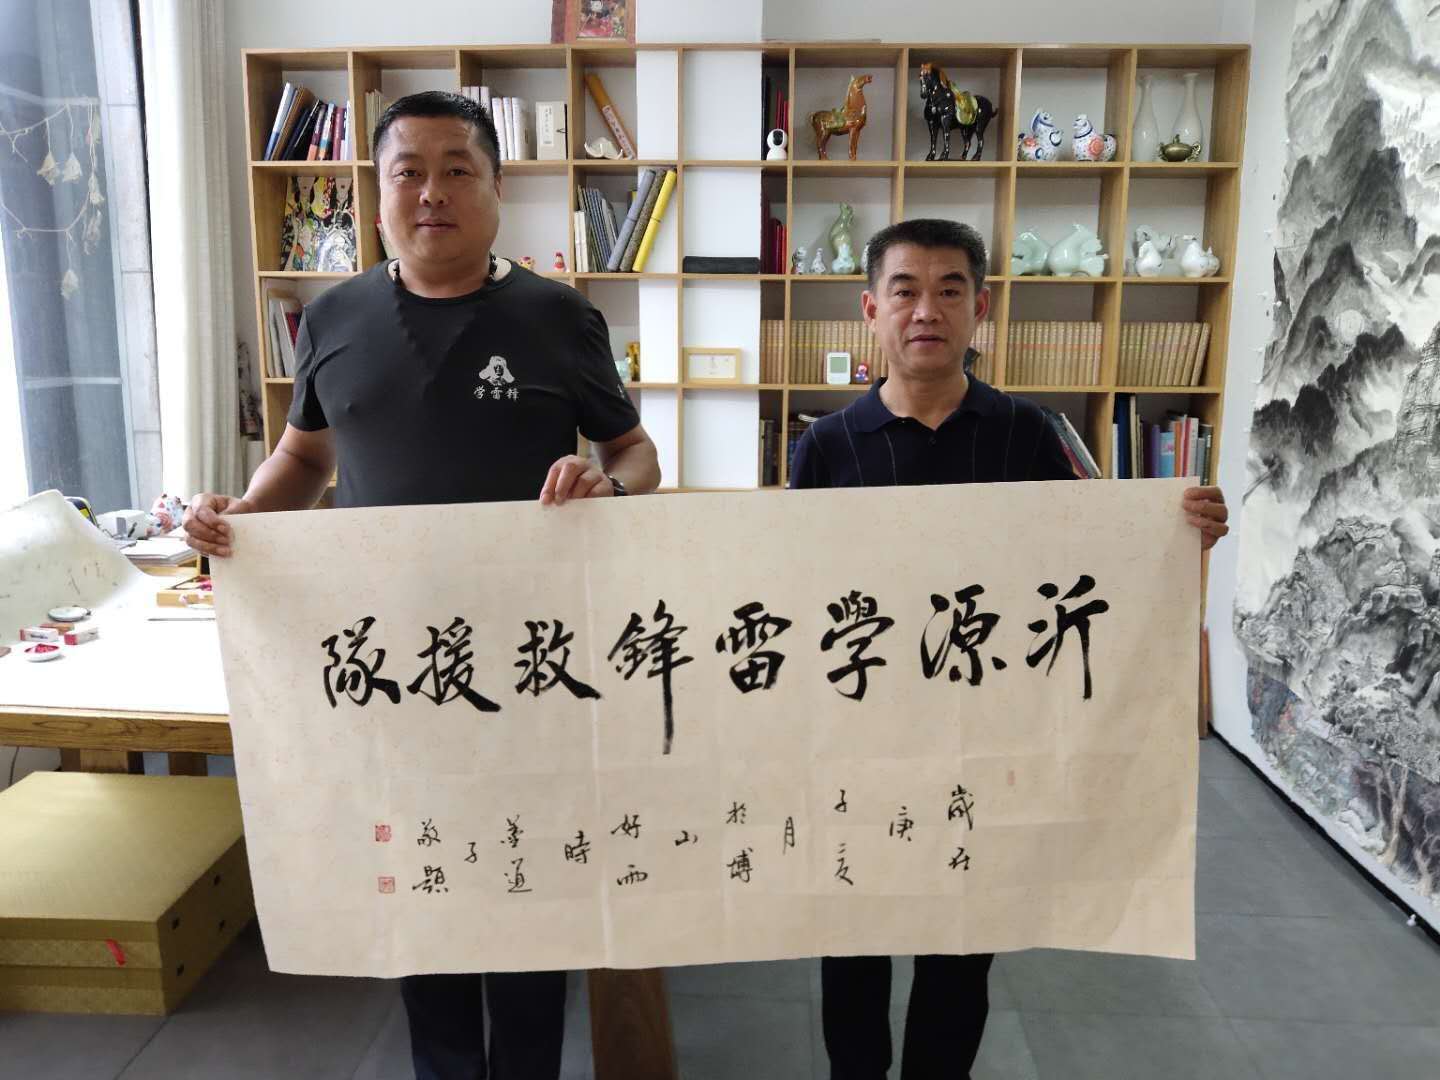 学雷锋
沂源學雷鋒救援隊
歲在庚子夏月於博山好雨時道子敬題